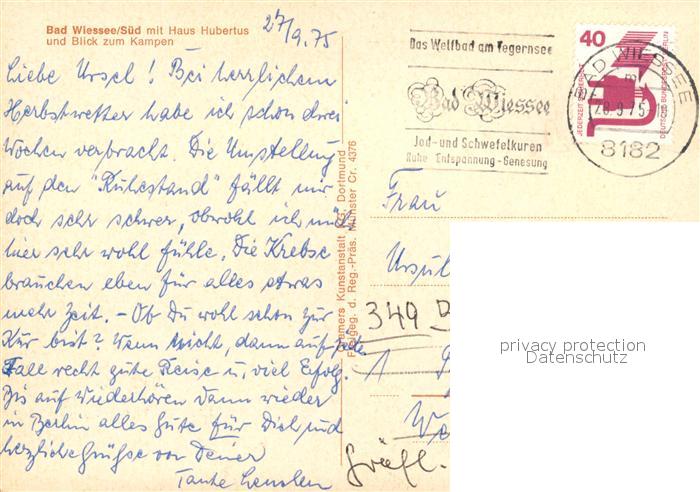 Bad Wiessee/Süd mit Haus Hubertus
und Blick zum Kampen
27/9.75
Liebe Ursel! Bei herrlichem
Herbstwetter habe ich schon drei
Wochen verbracht. Die Umstellung
auf den "Ruhestand" fällt mir
doch sehr schwer, obwohl ich mich
hier sehr wohl fühle. Die Krebse
brauchen eben für alles etwas
mehr Zeit. - Ob Du wohl schon zur
Kur bist? Wenn nicht, dann auf jede
Fall recht gute Reise u. viel Erfolg.
Bis auf Wiederhören dann wieder
in Berlin alles Gute für Dich und
herzliche Grüße von Deiner
Tante
Kunstanstalt KG. Dortmund
d. Reg.-Präs. Münster Cr. 4376
Das Weltbad am Tegernsee
Bad Wiessee
Jod- und Schwefelkuren
Ruhe - Entspannung - Genesung
40
JEDERZEIT SICHERHEIT
DEUTSCHE BUNDESPOST BERLIN
BAD WIESSEE
28.9.75
8182
Frau
Ursul
349
1
privacy protection
Datenschutz